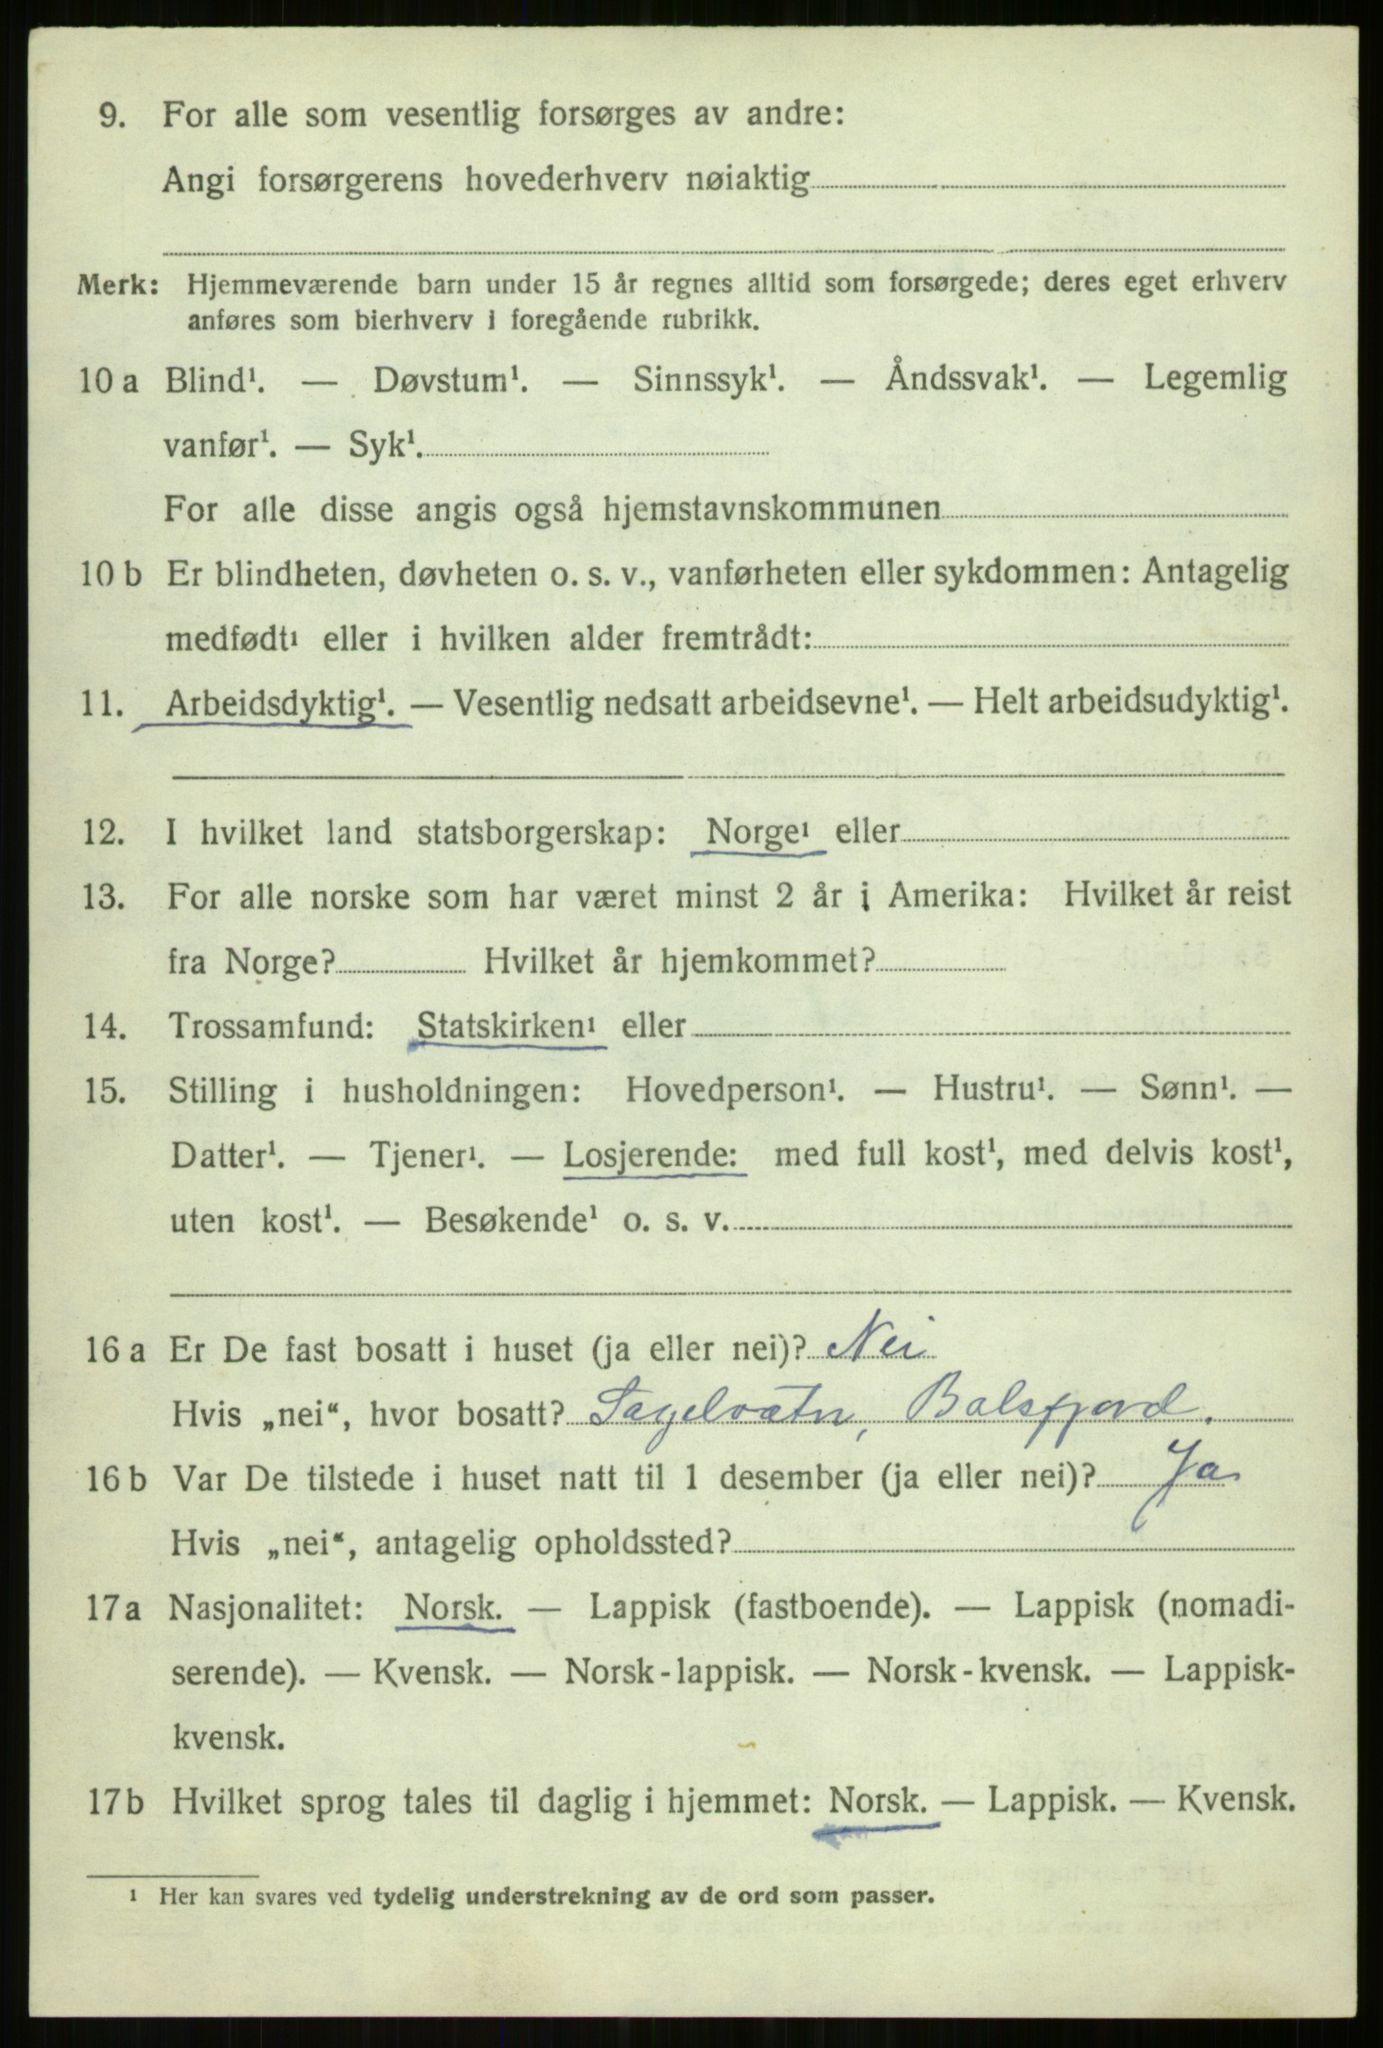 9. For alle som vesentlig forsørges av andre:
Angi forsørgerens hovederhverv nøiaktig
Merk: Hjemmeværende barn under 15 år regnes alltid som forsørgede; deres eget erhverv
anføres som bierhverv i foregående rubrikk.
10 a Blind¹. — Døvstum¹. — Sinnssyk¹. — Åndssvak¹. — Legemlig
vanfør¹. — Syk¹.
For alle disse angis også hjemstavnskommunen
10 b Er blindheten, døvheten o. s. v., vanførheten eller sykdommen: Antagelig
medfødt¹ eller i hvilken alder fremtrådt:
11. Arbeidsdyktig¹. — Vesentlig nedsatt arbeidsevne¹. — Helt arbeidsudyktig¹.
12. I hvilket land statsborgerskap: Norge¹ eller
13. For alle norske som har været minst 2 år i Amerika: Hvilket år reist
fra Norge? Hvilket år hjemkommet?
14. Trossamfund: Statskirken¹ eller
15. Stilling i husholdningen: Hovedperson¹. — Hustru¹. — Sønn¹. —
Datter¹. — Tjener¹. — Losjerende: med full kost¹, med delvis kost¹,
uten kost¹. — Besøkende¹ o. s. v.
16 a Er De fast bosatt i huset (ja eller nei)? Nei
Hvis „nei“, hvor bosatt? Sagelvatn, Balsfjord.
16 b Var De tilstede i huset natt til 1 desember (ja eller nei)? Ja
Hvis „nei“, antagelig opholdssted?
17 a Nasjonalitet: Norsk. — Lappisk (fastboende). — Lappisk (nomadi-
serende). — Kvensk. — Norsk-lappisk. — Norsk-kvensk. — Lappisk-
kvensk.
17 b Hvilket sprog tales til daglig i hjemmet: Norsk. — Lappisk. — Kvensk.
¹ Her kan svares ved tydelig understrekning av de ord som passer.